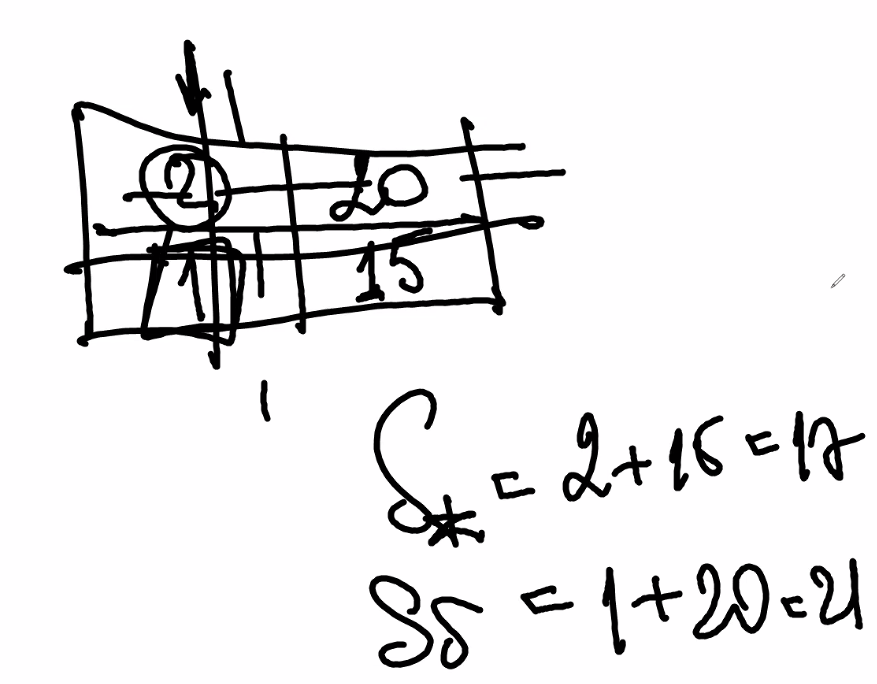 2 20
1 15
S* = 2 + 15 = 17
Sб = 1 + 20 = 21